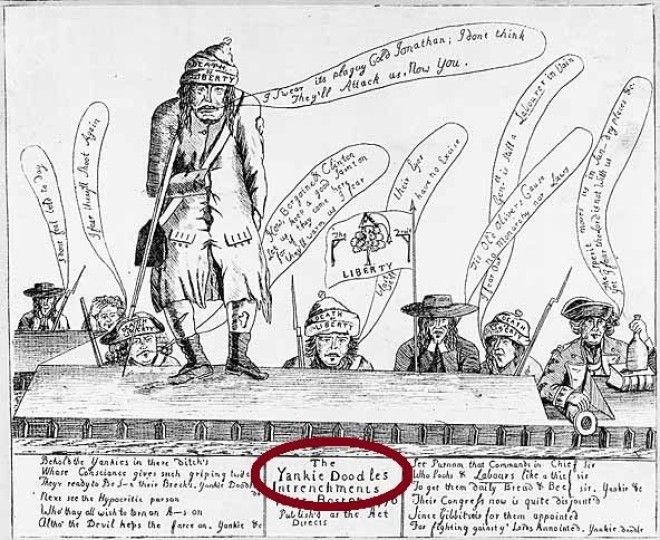 DEATH
OR
LIBERTY
I Swear its plaguy Cold Jonathan; I dont think
They'll Attack us, Now You.
I fear they'll Shoot Again
I dont feel bold to Day
Now Borgoine & Clinton
let us keep a good Joint on
for if they come here
they'll warm us I fear
their Eyes
have no Excise
DEATH
OR LIBERTY
LIBERTY
DEATH
LIBERTY
Gen is still a Labourer in Vain
Tis Old Olivers Cause
no Monarchy nor Laws
Spirit moves us in Sun-dry places &c.
fear the Lord is not with us
Behold the Yankies in there ditch's
Whose Conscience gives such griping
They'r ready to Be S-n their Breech's, Yankie Dood
Next see the Hypocritic parson
Who thay all wish to turn an A-s on
Altho the Devil keeps the farce on. Yankie &c
The
Yankie Doodles
Intrenchments
Near Boston 1776
Publish'd as the Act
Directs
See Putnam that Commands in Chief Sir
Who Looks & Labours like a thief sir
To get them daily Bread & Beef sir. Yankie &c
Their Congress now is quite disjoint'd
Since Gibbits is for them appointed
For fighting gainst Lords Annointed. Yankie doodle